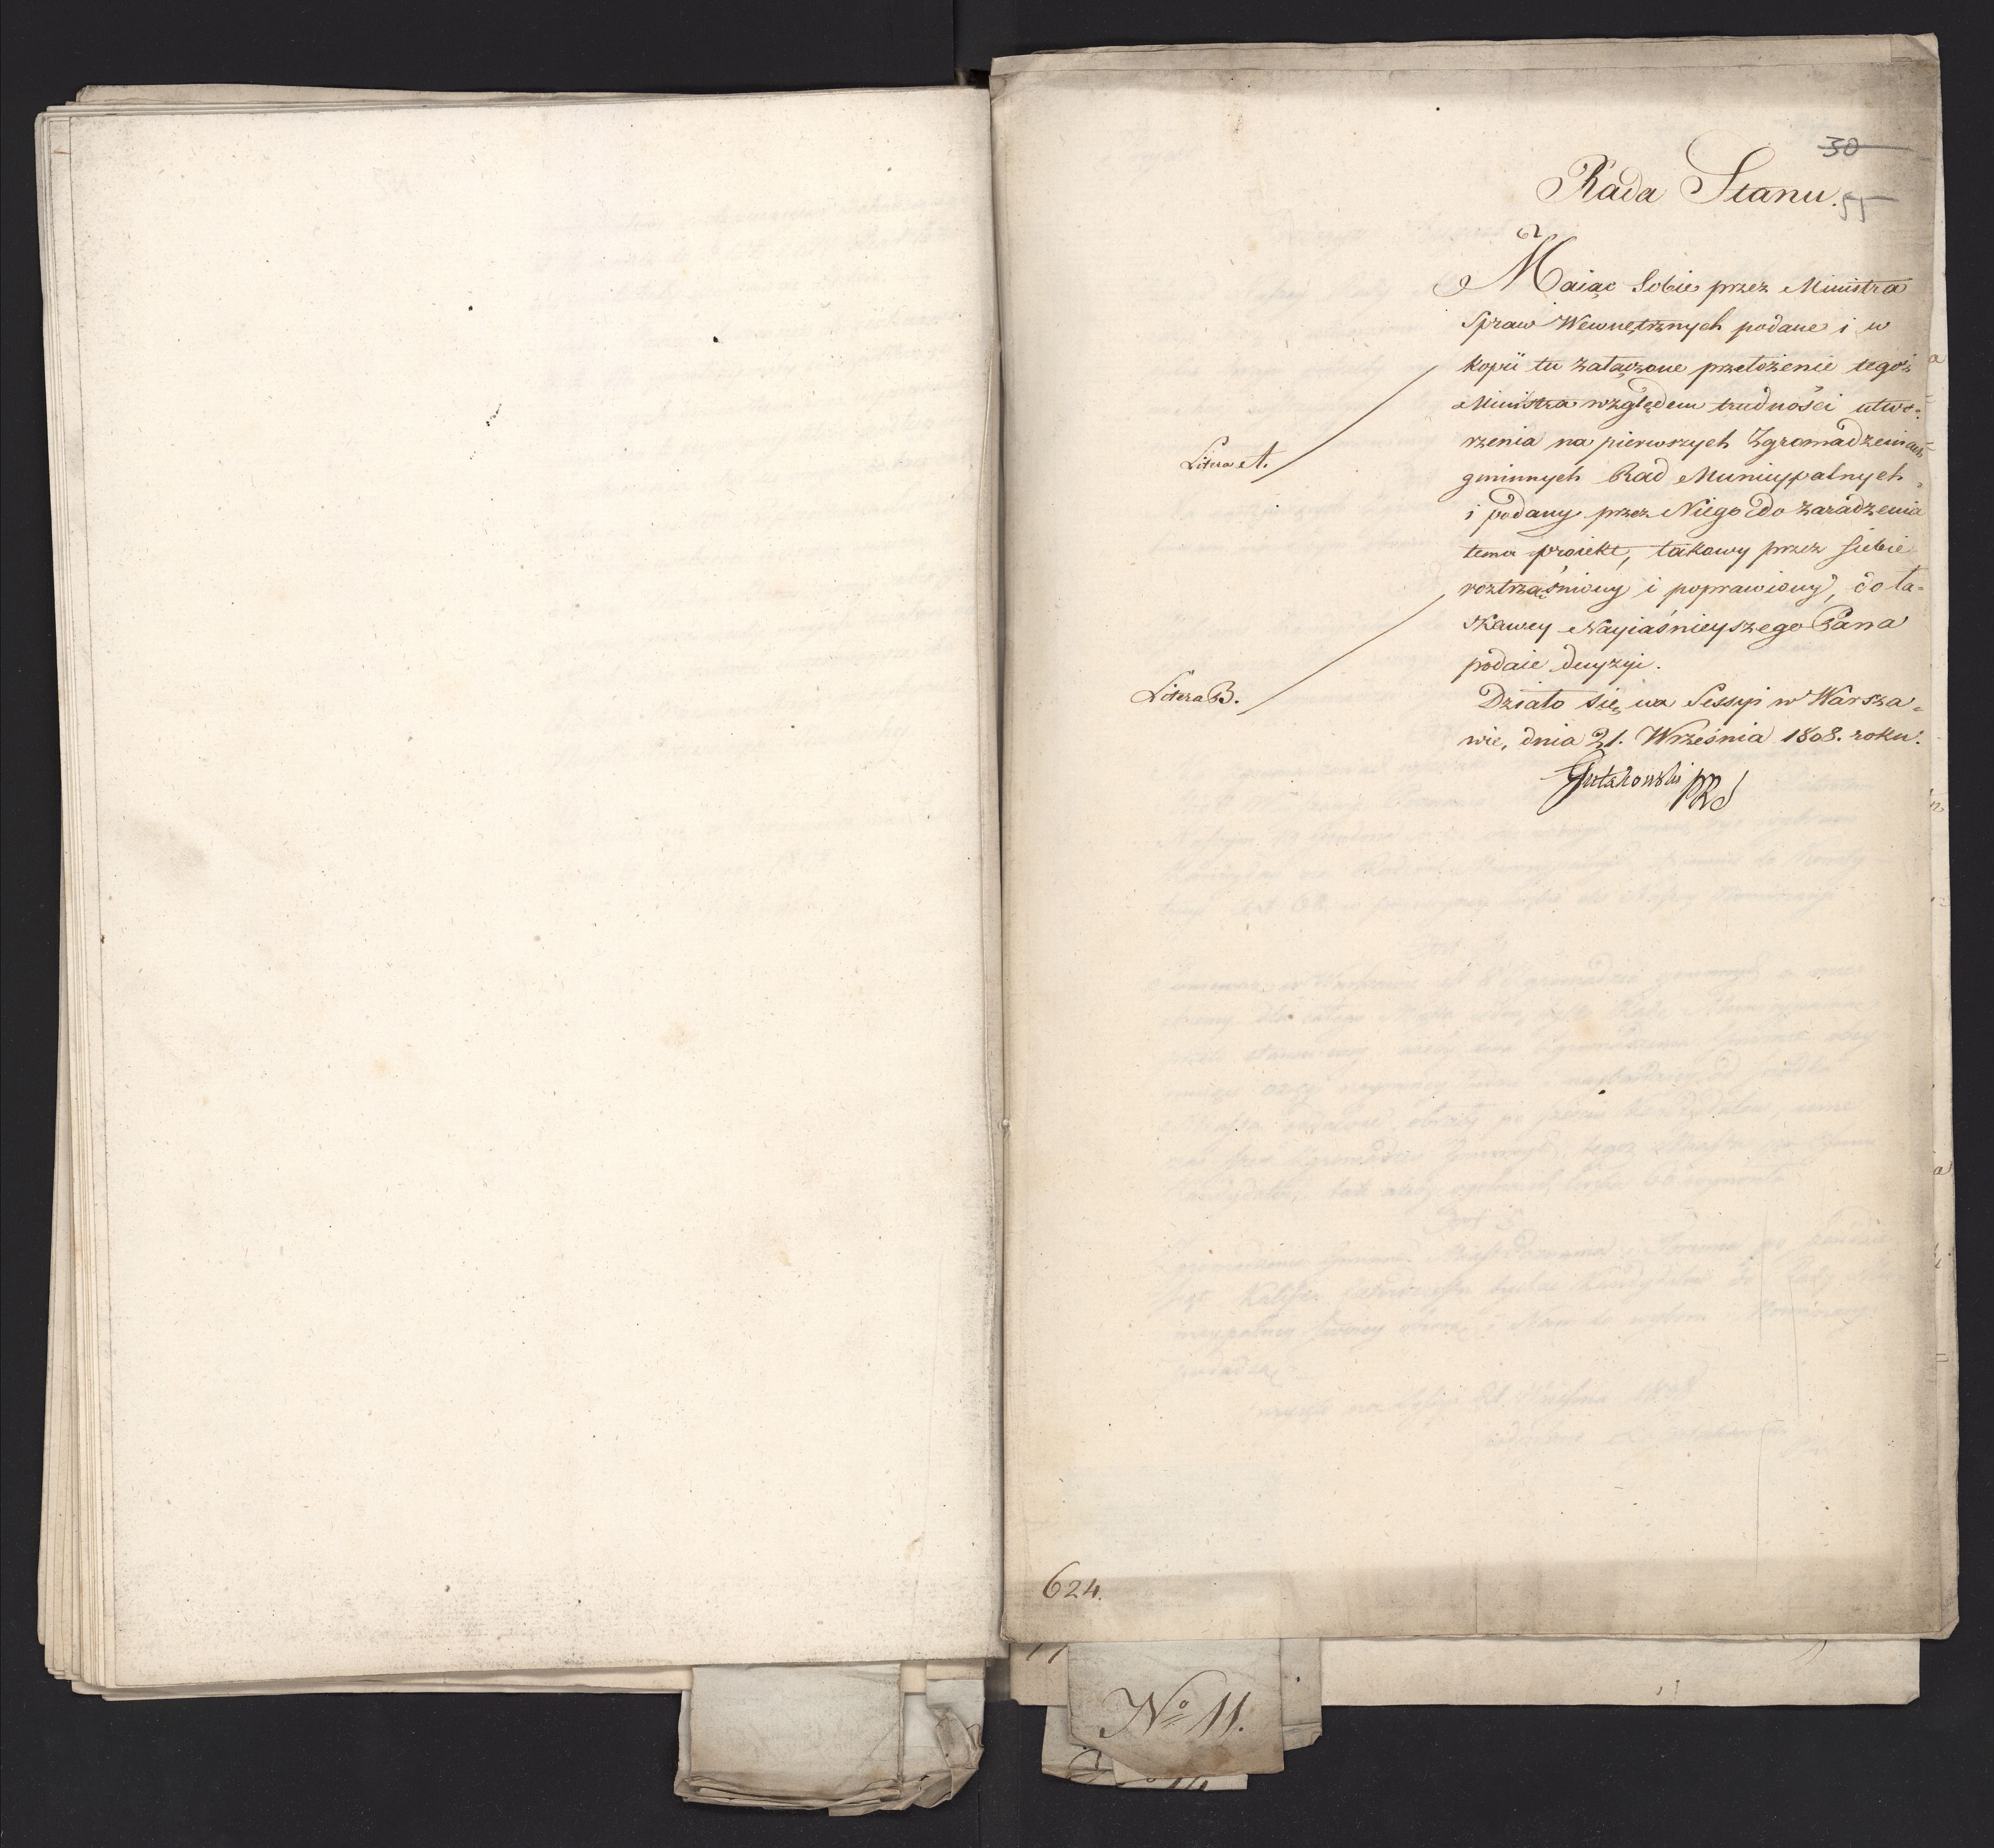 30
Rada Stanu.
55
Maiąc Sobie przez Ministra
Spraw Wewnętrznych podane i w
kopii tu załączone przełożenie tegoż
Ministra względem trudności utwo=
rzenia na pierwszych Zgromadzeniach
gminnych Rad Municypalnych
i podany przez Niego do zaradzenia
temu proiekt, takowy przez siebie
roztrząśniony i poprawiony, do ła=
skawey Nayiaśnieyszego Pana
podaie decyzyi.
Działo się na Sessyi w Warsza=
wie, dnia 21. Września 1808. roku.
Gutakowski PRS
Litera A.
Litera B.
624.
No 11.